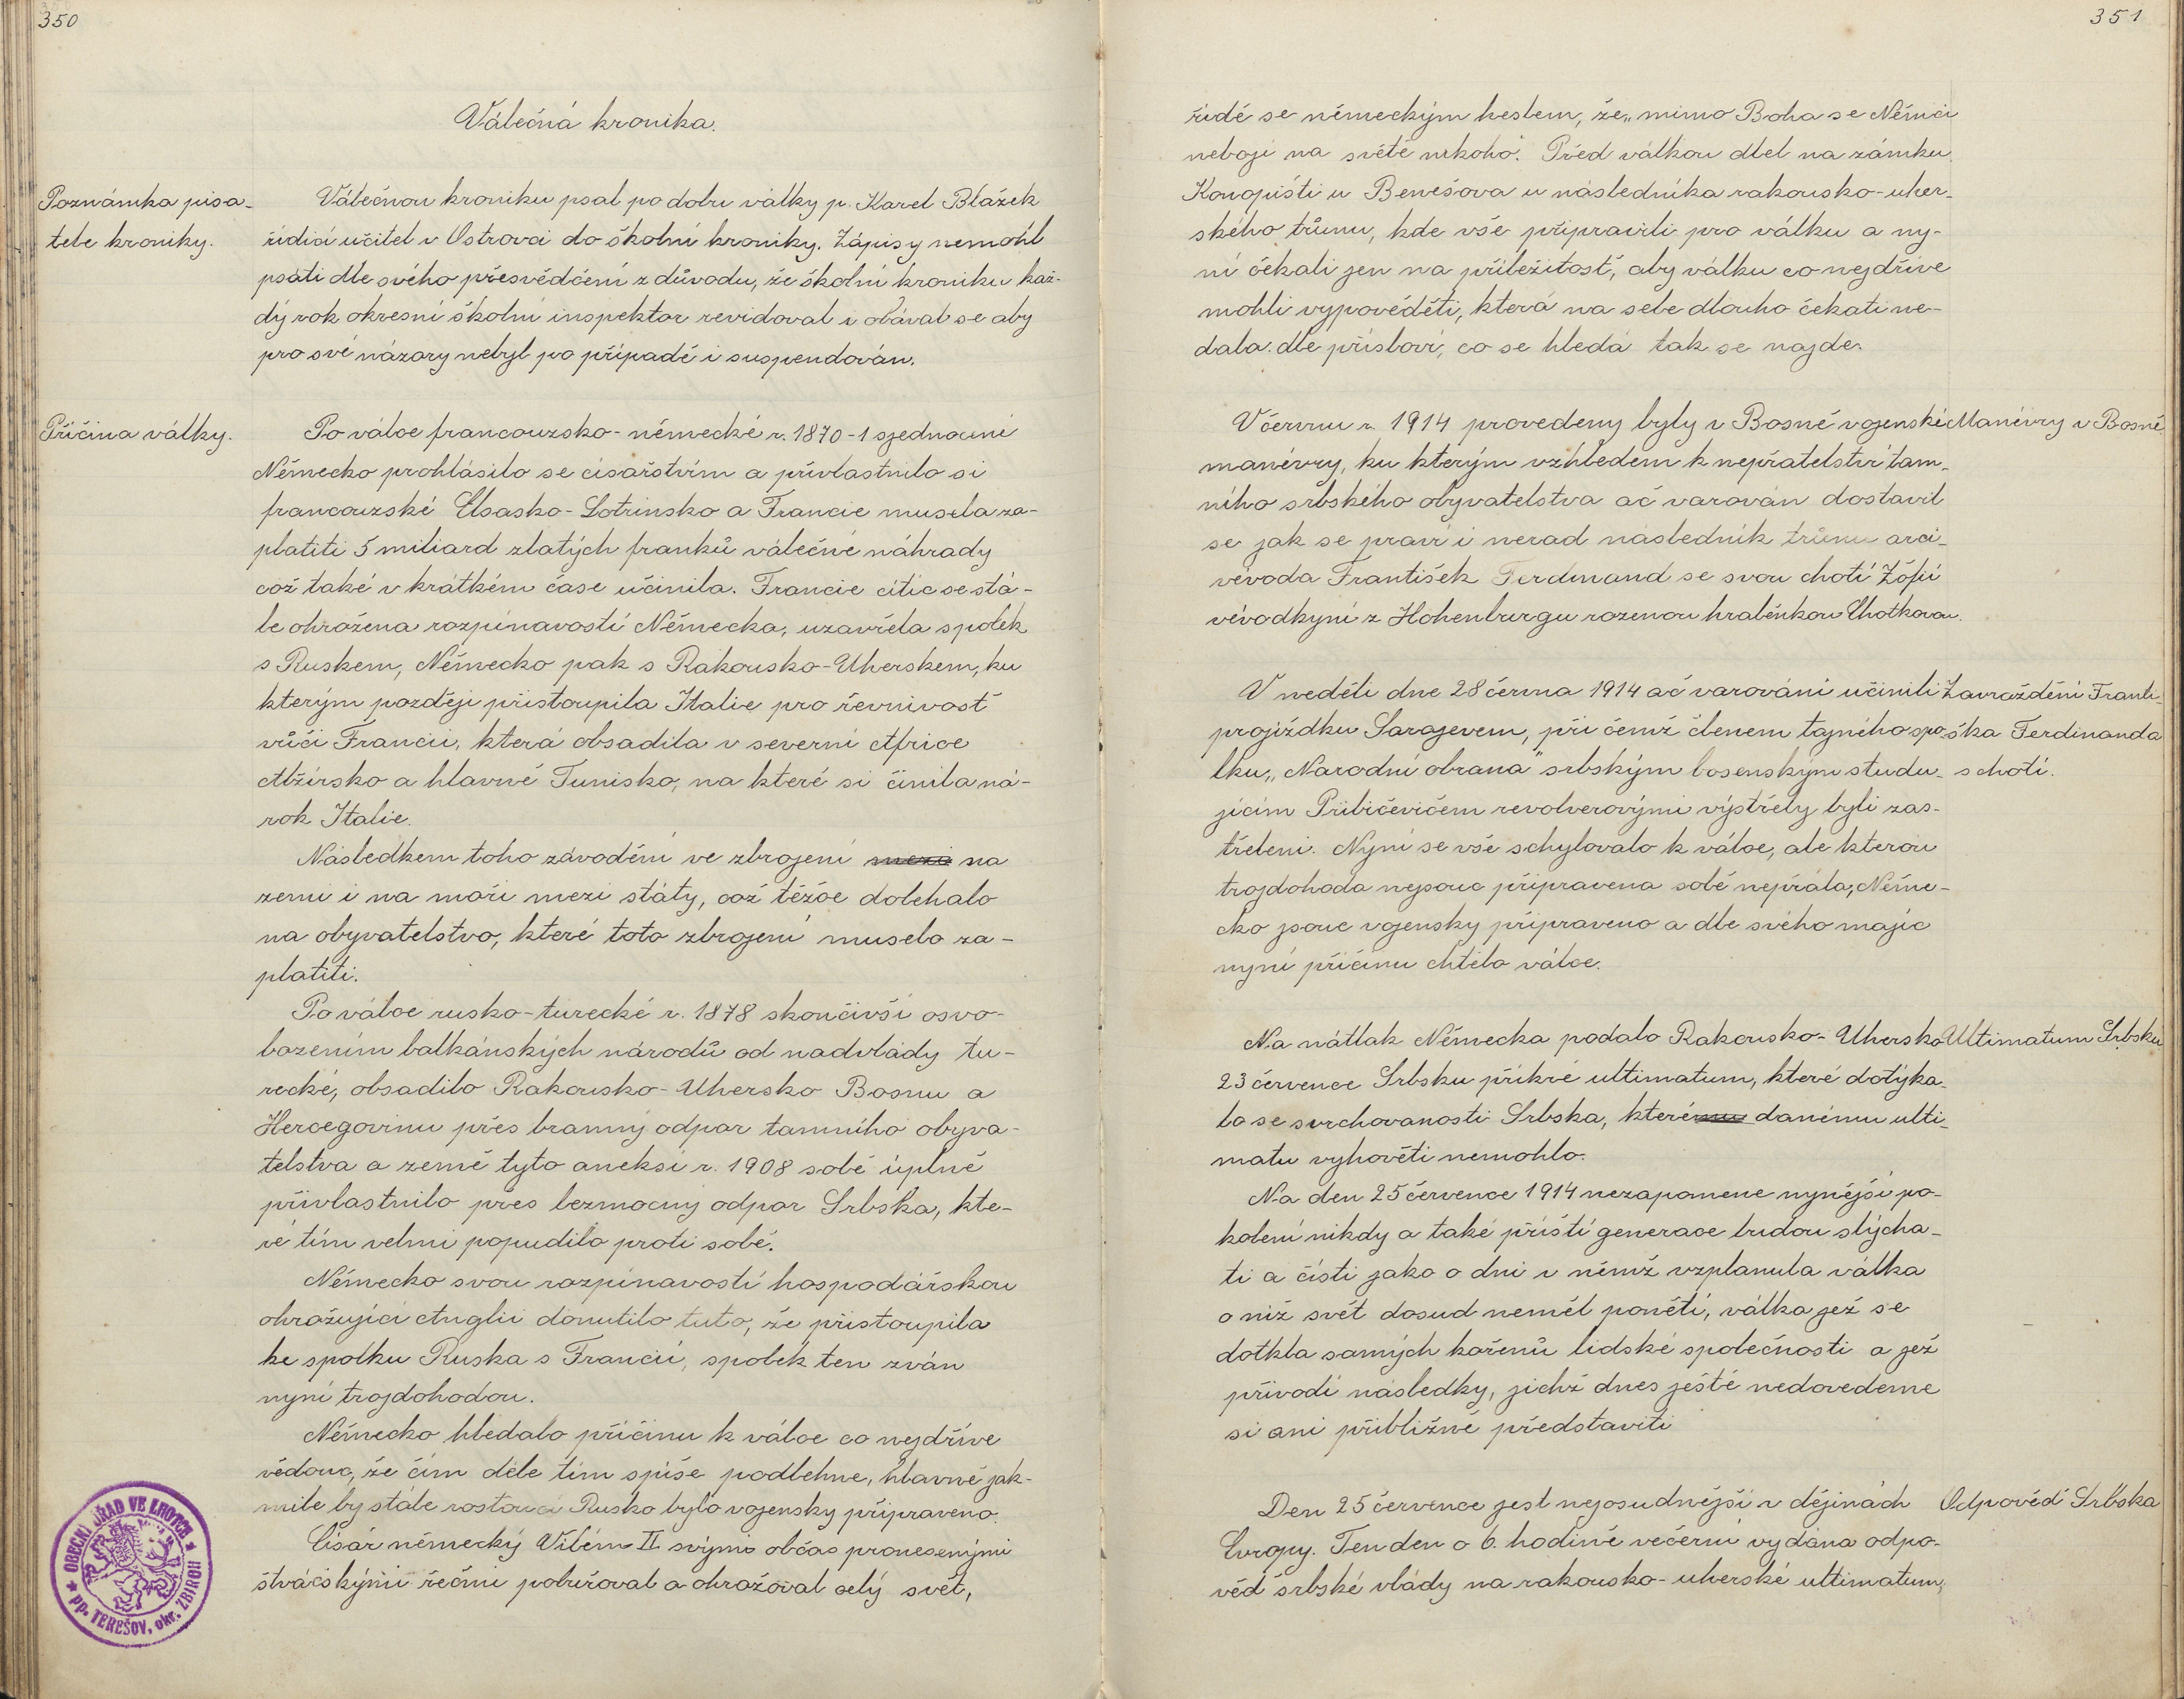 350
Válečná kronika.
Poznámka pisa-
tele kroniky.
Válečnou kroniku psal po dobu války p. Karel Blažek
řídící učitel v Ostrovci do školní kroniky. Zápisy nemohl
psáti dle svého přesvědčení z důvodu, že školní kroniku kaž-
dý rok okresní školní inspektor revidoval i obával se aby
pro své názory nebyl po případě i suspendován.
Příčina války.
Po válce francouzsko-německé r. 1870-1 sjednocené
Německo prohlásilo se císařstvím a přivlastnilo si
francouzské Elsasko-Lotrinsko a Francie musela za-
platiti 5 miliard zlatých franků válečné náhrady
což také v krátkém čase učinila. Francie cítíc se stá-
le ohrožena rozpínavostí Německa, uzavřela spolek
s Ruskem, Německo pak s Rakousko-Uherskem, ku
kterým později přistoupila Italie pro řevnivost
vůči Francii, která obsadila v severní Africe
Alžírsko a hlavně Tunisko, na které si činila ná-
rok Italie.
Následkem toho závodění ve zbrojení mezi na
zemi i na moři mezi státy, což těžce doléhalo
na obyvatelstvo, které toto zbrojení muselo za-
platiti.
Po válce rusko-turecké r. 1878 skončivší osvo-
bozením balkánských národů od nadvlády tu-
recké, obsadilo Rakousko-Uhersko Bosnu a
Hercegovinu přes branný odpor tamního obyva-
telstva a země tyto aneksí r. 1908 sobě úplně
přivlastnilo přes bezmocný odpor Srbska, kte-
ré tím velmi popudilo proti sobě.
Německo svou rozpínavostí hospodářskou
ohrožující Anglii donutilo tuto, že přistoupila
ke spolku Ruska s Francií, spolek ten zván
nyní trojdohodou.
Německo hledalo příčinu k válce co nejdříve
vědouc, že čím déle tím spíše podlehne, hlavně jak-
mile by stále rostoucí Rusko bylo vojensky připraveno.
Císář německý Vilém II svými občas pronesenými
štváčskými řečmi pobuřoval a ohrožoval celý svět,
OBECNÍ ÚŘAD VE LHOTCE
pp. TEREŠOV, okr. ZBIROH
351
řídě se německým heslem, že „mimo Boha se Němci
nebojí na světě nikoho. Před válkou dlel na zámku
Konopišti u Benešova u následníka rakousko-uher-
ského trůnu, kde vše připravili pro válku a ny-
ní čekali jen na příležitost, aby válku co nejdříve
mohli vypověděti, která na sebe dlouho čekati ne-
dala. dle přísloví, co se hledá tak se najde.
V červnu r. 1914 provedeny byly v Bosně vojenské
Manévry v Bosně.
manévry, ku kterým vzhledem k nepřatelství tam-
ního srbského obyvatelstva ač varován dostavil
se jak se praví i nerad následník trůnu arci-
vévoda František Ferdinand se svou chotí Žofií
vévodkyní z Hohenburgu rozenou hraběnkou Chotkovou.
V neděli dne 28 června 1914 ač varováni učinili
Zavraždění Franti-
projížďku Sarajevem, při čemž členem tajného spo-
ška Ferdinanda
lku „Narodní obrana" srbským bosenským studu-
s chotí.
jícím Pribičevičem revolverovými výstřely byli zas-
třeleni. Nyní se vše schylovalo k válce, ale kterou
trojdohoda nejsouc připravena sobě nepřála, Něme-
cko jsouc vojensky připraveno a dle svého majíc
nyní příčinu chtělo válce.
Na nátlak Německa podalo Rakousko-Uhersko
Ultimatum Srbsku.
23 července Srbsku příkré ultimatum, které dotýka-
lo se svrchovanosti Srbska, kterému danému ulti-
matu vyhověti nemohlo.
Na den 25 července 1914 nezapomene nynější po-
kolení nikdy a také příští generace budou slýcha-
ti a čísti jako o dni v němž vzplanula válka
o níž svět dosud neměl ponětí, válka jež se
dotkla samých kořenů lidské společnosti a jež
přivodí následky, jichž dnes ještě nedovedeme
si ani přibližně představiti
Den 25 července jest nejosudnější v dějinách
Odpověď Srbska
Evropy. Ten den o 6. hodině večerní vydána odpo-
věď srbské vlády na rakousko-uherské ultimatum,